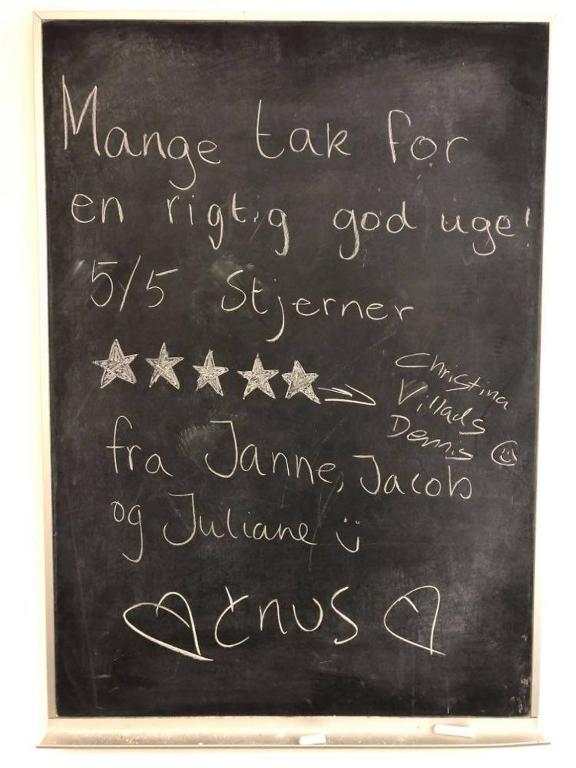 Mange tak for
en rigtig god uge!
5/5 Stjerner
Christina
Villads
Dennis
fra Janne, Jacob
og Juliane